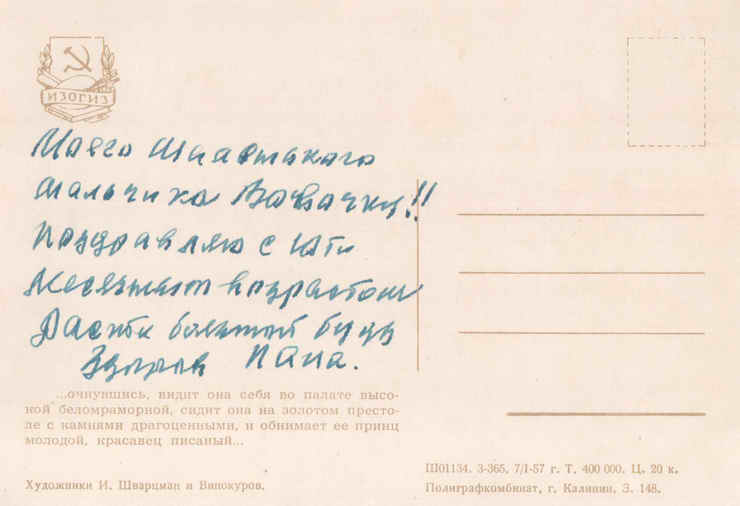 ИЗОГИЗ
Моего маленького
мальчика Вовочку!!
Поздравляю с
месячным возрастом
Расти большой будь
здоров Папа.
...очнувшись, видит она себя во палате высо-
кой беломраморной, сидит она на золотом престо-
ле с камнями драгоценными, и обнимает ее принц
молодой, красавец писаный...
Художники И. Шварцман и Винокуров.
Ш01134. 3-365. 7/I-57 г. Т. 400 000. Ц. 20 к.
Полиграфкомбинат, г. Калинин. З. 148.